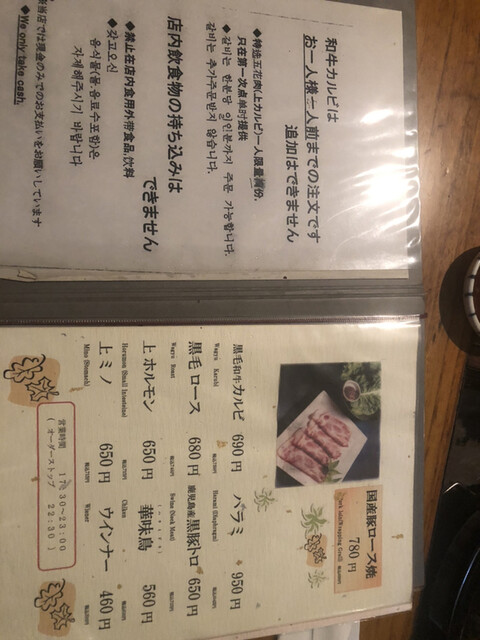 和牛カルビは
お一人様一人前までの注文です
追加はできません
只在第一次点单时提供
◆갈비는 한분당 일인분까지 주문 가능합니다.
갈비는 추가주문받지 않습니다.
店内飲食物の持ち込みは
できません
◆禁止在店内食用外带食品,饮料
◆갖고오신
음식물(물.음료수포함)은
자제해주시기 바랍니다
当店では現金のみでのお支払いをお願いしています
◆We only take cash.
国産豚ロース焼
780円
黒毛和牛カルビ 690円
Wagyu Karubi
ハラミ 950円
Harami (Diaphragm)
黒毛ロース 680円
Wagyu Roast
鹿児島産黒豚トロ 650円
上ホルモン 650円
Horumon (Small Intestine)
華味鳥 560円
Chiken
上ミノ 650円
Mino (Stomach)
ウインナー 460円
Winner
営業時間 17:30~23:00
(オーダーストップ 22:30)